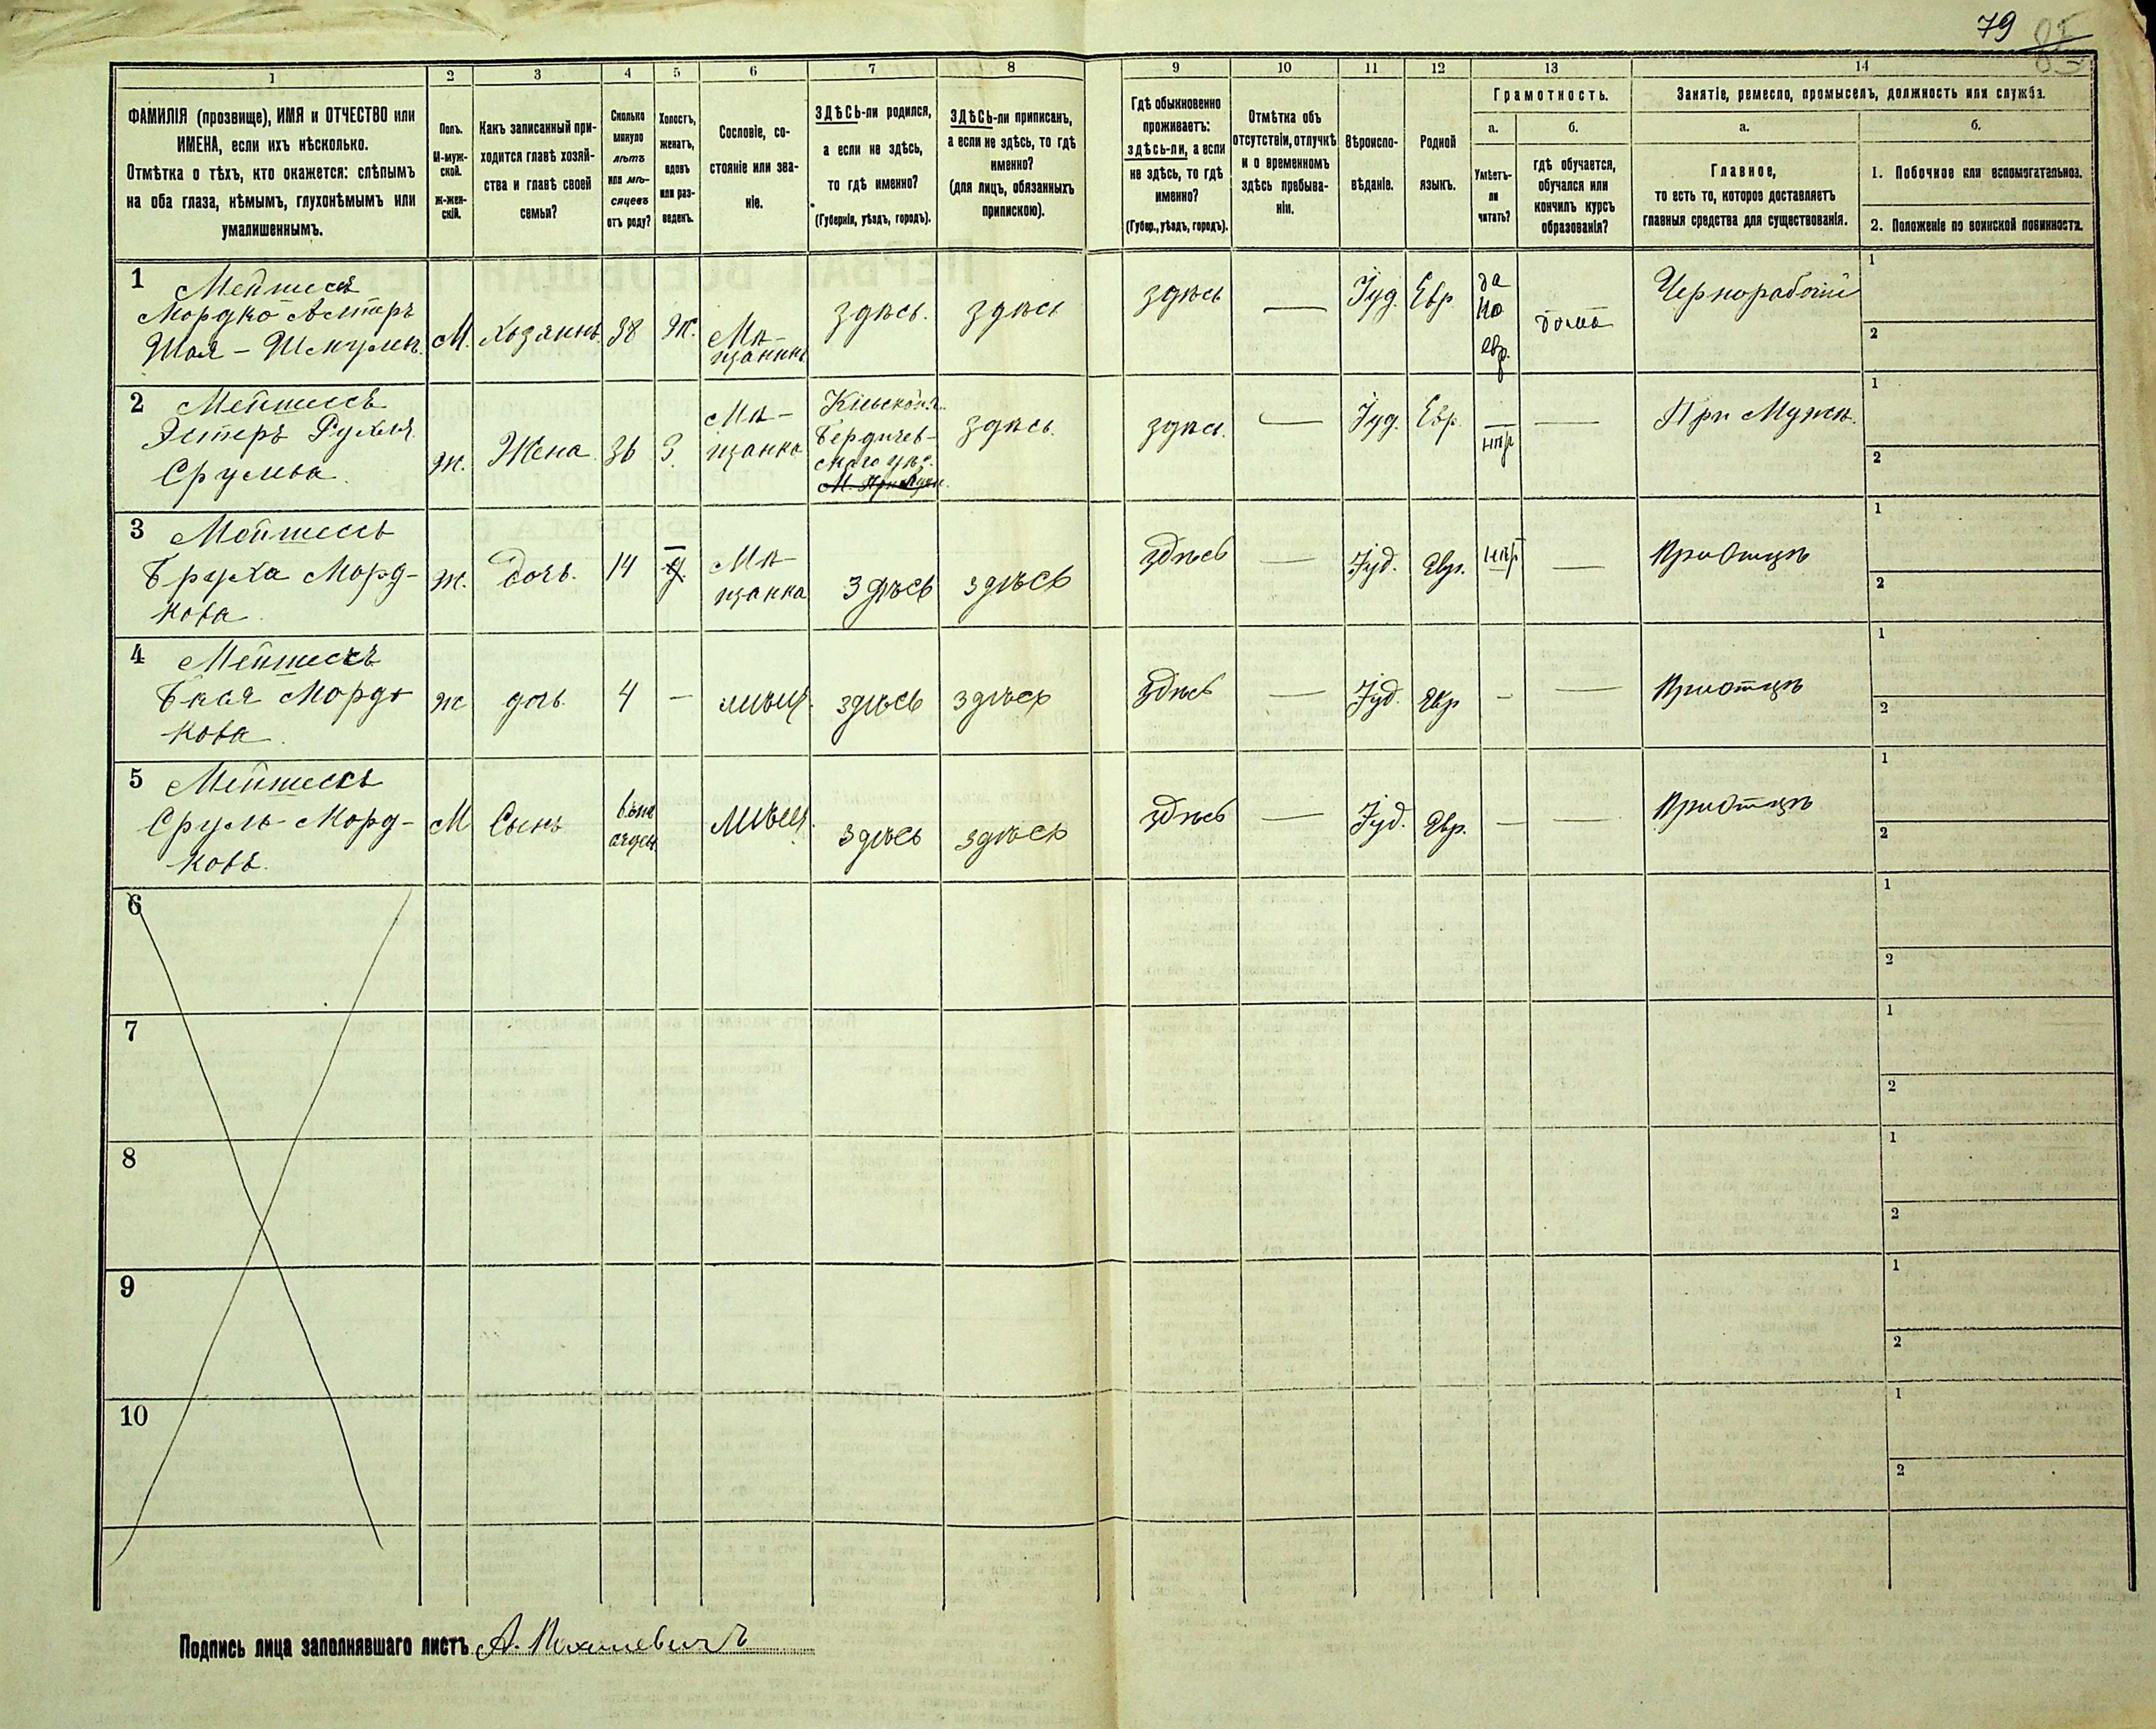 79
85
1
2
3
4
5
6
7
8
9
10
11
12
13
14
ФАМИЛІЯ (прозвище), ИМЯ и ОТЧЕСТВО или
ИМЕНА, если ихъ нѣсколько.
Отмѣтка о тѣхъ, кто окажется: слѣпымъ
на оба глаза, нѣмымъ, глухонѣмымъ или
умалишеннымъ.
Полъ.
М-муж-
ской.
ж-жен-
скій.
Какъ записанный при-
ходится главѣ хозяй-
ства и главѣ своей
семьи?
Сколько
минуло
лѣтъ
или мѣ-
сяцевъ
отъ роду?
Холостъ,
женатъ,
вдовъ
или раз-
веденъ.
Сословіе, со-
стояніе или зва-
ніе.
ЗДѢСЬ-ли родился,
а если не здѣсь,
то гдѣ именно?
(Губернія, уѣздъ, городъ).
ЗДѢСЬ-ли приписанъ,
а если не здѣсь, то гдѣ
именно?
(для лицъ, обязанныхъ
припискою).
Гдѣ обыкновенно
проживаетъ:
здѣсь-ли, а если
не здѣсь, то гдѣ
именно?
(Губер., уѣздъ, городъ).
Отмѣтка объ
отсутствіи, отлучкѣ
и о временномъ
здѣсь пребыва-
ніи.
Вѣроиспо-
вѣданіе.
Родной
языкъ.
Грамотность.
а.
Умѣетъ-
ли
читать?
б.
гдѣ обучается,
обучался или
кончилъ курсъ
образованія?
Занятіе, ремесло, промыселъ, должность или служба.
а.
Главное,
то есть то, которое доставляетъ
главныя средства для существованія.
б.
1. Побочное или вспомогательное.
2. Положеніе по воинской повинности.
1 Мейтесъ
Мордко
Шая - Шмулев.
М.
Хозяинъ
38
Ж.
Мѣ-
щанинъ
здѣсь.
здѣсь
здѣсь
—
Іуд.
Евр.
да
по
евр.
дома
Чернорабочій
1
2
2 Мейтесъ
Эстеръ Рухля
Срулева.
ж.
Жена
36
З.
Мѣ-
щанка
Кіевской г.
Бердичев-
скаго уѣз.
здѣсь.
здѣсь.
—
Іуд.
Евр.
нѣт
—
При Мужѣ.
1
2
3 Мейтесъ
Бруха Морд-
кова
ж.
Дочь.
14
Мѣ-
щанка
здѣсь
здѣсь
здѣсь
—
Іуд.
Евр.
нѣт
—
При отцѣ
1
2
4 Мейтесъ
Мордь
кова
ж
дочь.
4
—
мѣщ.
здѣсь
здѣсь
здѣсь
—
Іуд.
Евр
–
—
При отцѣ
1
2
5 Мейтесъ
Сруль Морд-
ковъ.
М
Сынъ
мѣщ.
здѣсь
здѣсь
здѣсь
—
Іуд.
Евр.
—
—
При отцѣ
1
2
6
1
2
7
1
2
8
1
2
9
1
2
10
1
2
Подпись лица заполнявшаго листъ